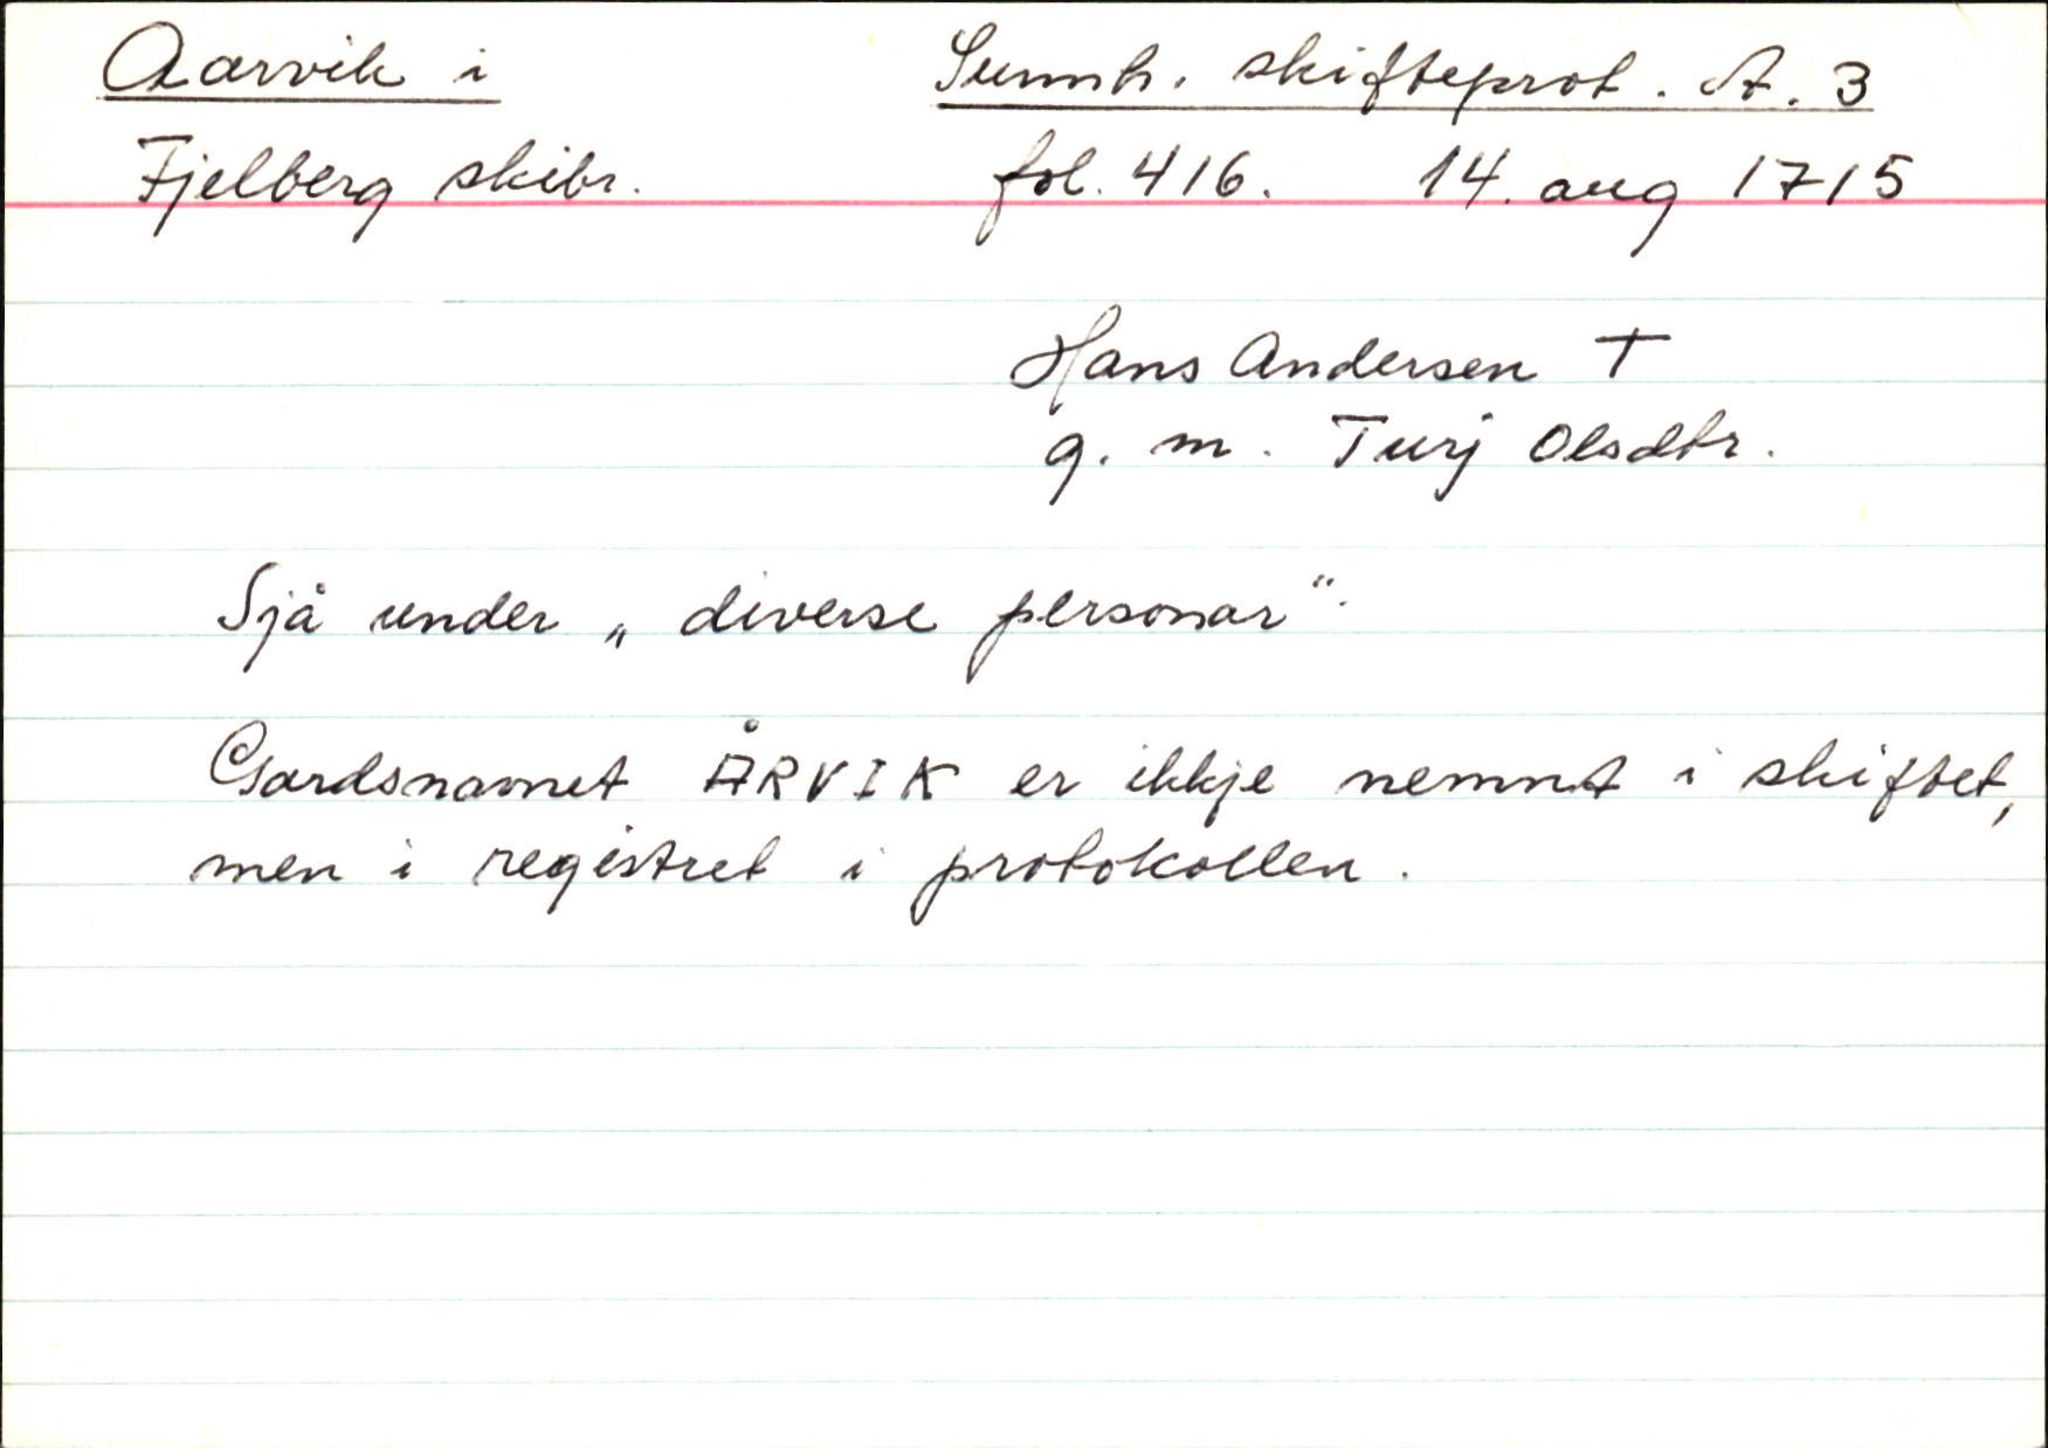 Aarvik i
Sunnh. skifteprot. A. 3
Fjelberg skibr.
fol. 416. 14. aug 1715
Hans Andersen †
g. m. Turj Olsdtr.
Sjå under „diverse personar“.
Gardsnamnet ÅRVIK er ikkje nemnt i skiftet,
men i registret i protokollen.